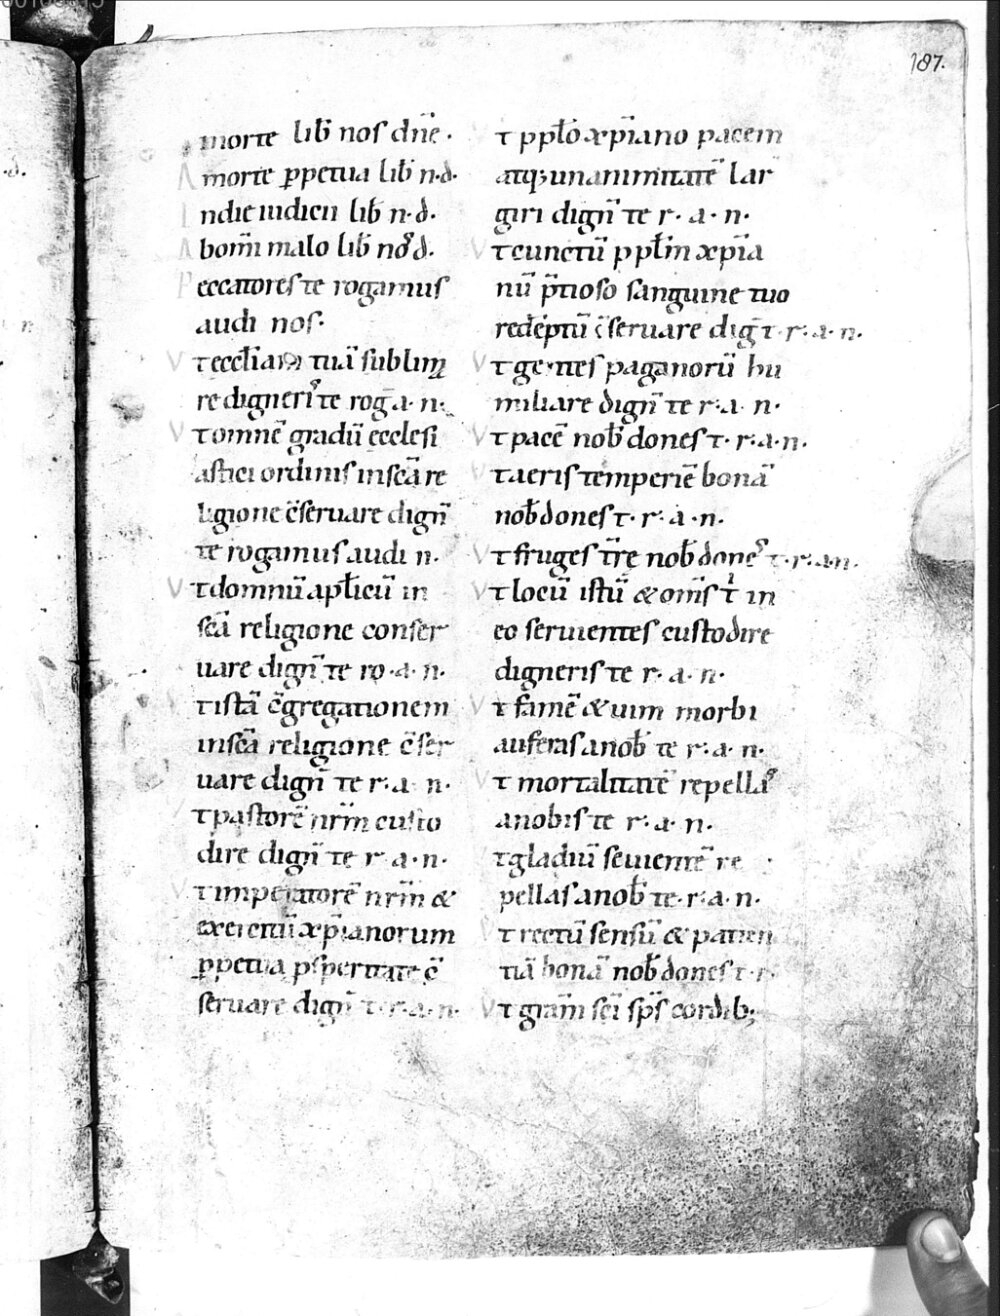 187.
A morte lib̄ nos dn̄e.
A morte ꝑpetua lib̄ n.d.
In die iudicii lib̄ n.d.
Ab om̄i malo lib̄ nos d.
Peccatores te rogamus
audi nos.
Vt eccl̄iam tuā sublima
re digneris te roḡ.a.n.
Vt omnē gradū ecclesi
astici ordinis in sc̄a re
ligione c̄seruare dign̄
te rogamus audi n.
Vt domnū apl̄icū in
sc̄a religione conser
uare dign̄ te ro.a.n.
Vt istā c̄gregationem
in sc̄a religione c̄ser
uare dign̄ te r.a.n.
Vt pastorē nr̄m custo
dire dign̄ te r.a.n.
Vt imperatorē nr̄m &
exercitū xp̄ianorum
ꝑpetua ꝓsperitate c̄
seruare dign̄ t.r.a.n.
Vt ppl̄o xp̄iano pacem
atq; unanimitatē lar
giri dign̄ te r.a.n.
Vt cunctū ppl̄m xp̄ia
nū p̄tioso sanguine tuo
redēptū c̄seruare dig̅ t.r.a.n.
Vt gentes paganorū hu
miliare dign̄ te r.a.n.
Vt pacē nob̄ dones t.r.a.n.
Vt aeris temperiē bonā
nob̄ dones t.r.a.n.
Vt fruges tr̄e nob̄ dones t.r.a.n.
Vt locū istū & om̄s i in
eo seruientes custodire
digneris te r.a.n.
Vt famē & uim morbi
auferas a nob̄ te r.a.n.
Vt mortalitatē repellas
a nobis te r.a.n.
Vt gladiū seuientē re
pellas a nob̄ te.r.a.n.
Vt rectū sensū & patien
tiā bonā nob̄ dones t.r.
Vt gr̄am sc̄i sp̄s cordib;